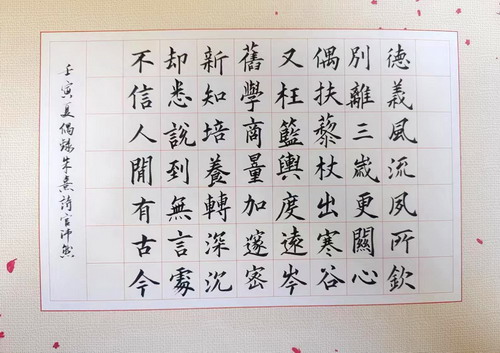 德義風流夙所欽
別離三嵗更關心
偶扶藜杖出寒谷
又枉籃輿度遠岑
舊學商量加邃密
新知培養轉深沉
却悉說到無言處
不信人閒有古今
壬寅夏偶錄朱熹詩官沛然